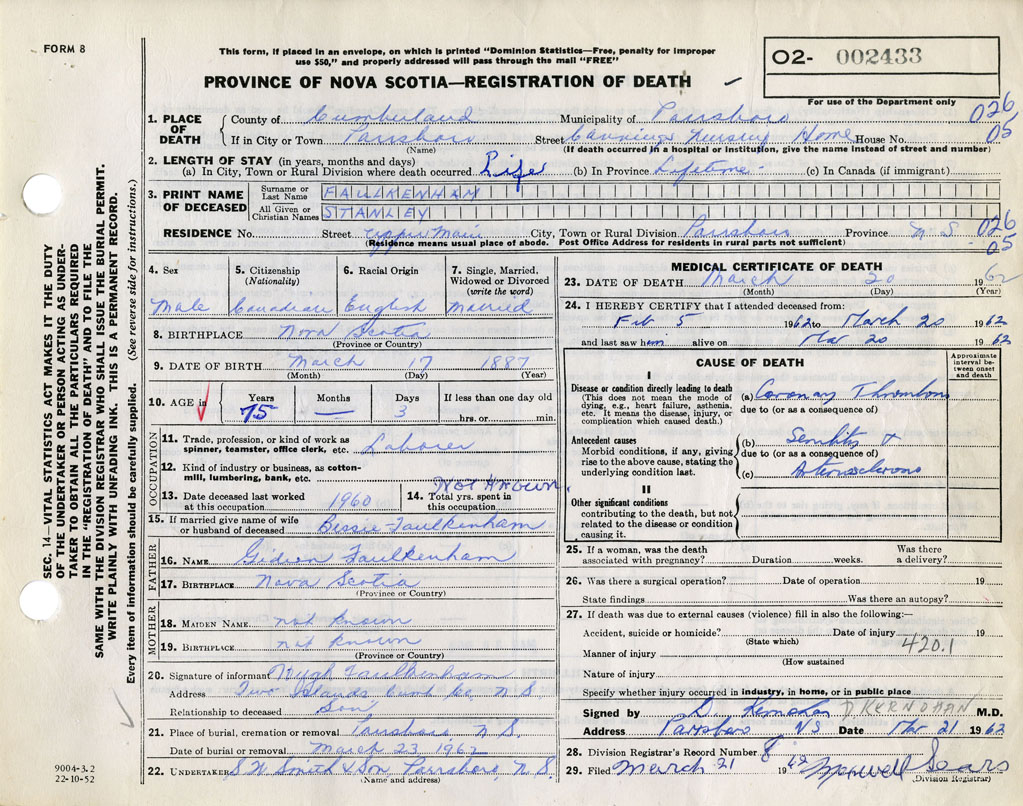 FORM 8
This form, if placed in an envelope, on which is printed "Dominion Statistics—Free, penalty for improper
use $50," and properly addressed will pass through the mail "FREE"
PROVINCE OF NOVA SCOTIA—REGISTRATION OF DEATH
O2- 002433
For use of the Department only
SEC. 14—VITAL STATISTICS ACT MAKES IT THE DUTY
OF THE UNDERTAKER OR PERSON ACTING AS UNDER-
TAKER TO OBTAIN ALL THE PARTICULARS REQUIRED
IN THE "REGISTRATION OF DEATH" AND TO FILE THE
SAME WITH THE DIVISION REGISTRAR WHO SHALL ISSUE THE BURIAL PERMIT.
WRITE PLAINLY WITH UNFADING INK. THIS IS A PERMANENT RECORD.
Every item of information should be carefully supplied. (See reverse side for instructions.)
1. PLACE OF DEATH County of Cumberland Municipality of Parrsboro 026
If in City or Town Parrsboro Street Canning's Nursing Home House No. 05
(Name) (If death occurred in a hospital or institution, give the name instead of street and number)
2. LENGTH OF STAY (in years, months and days)
(a) In City, Town or Rural Division where death occurred Life (b) In Province Lifetime (c) In Canada (if immigrant)
3. PRINT NAME OF DECEASED Surname or Last Name FAULKENHAM
All Given or Christian Names STANLEY
RESIDENCE No. Street Upper Main City, Town or Rural Division Parrsboro Province N S 026
05
(Residence means usual place of abode. Post Office Address for residents in rural parts not sufficient)
4. Sex Male
5. Citizenship (Nationality) Canadian
6. Racial Origin English
7. Single, Married, Widowed or Divorced (write the word) Married
8. BIRTHPLACE Nova Scotia
(Province or Country)
9. DATE OF BIRTH March 17 1887
(Month) (Day) (Year)
10. AGE in Years 75 Months — Days 3 If less than one day old hrs. or min.
OCCUPATION
11. Trade, profession, or kind of work as spinner, teamster, office clerk, etc. Laborer
12. Kind of industry or business, as cotton-mill, lumbering, bank, etc.
13. Date deceased last worked at this occupation 1960
14. Total yrs. spent in this occupation Not Known
15. If married give name of wife or husband of deceased Bessie Faulkenham
FATHER
16. NAME Gideon Faulkenham
17. BIRTHPLACE Nova Scotia
(Province or Country)
MOTHER
18. MAIDEN NAME not known
19. BIRTHPLACE not known
(Province or Country)
20. Signature of informant Hugh Faulkenham
Address Two Islands Cumb Co, N S
Relationship to deceased Son
21. Place of burial, cremation or removal Parrsboro N S.
Date of burial or removal March 23, 1962
22. UNDERTAKER S W Smith & Son, Parrsboro, N. S.
(Name and address)
9004-3.2
22-10-52
MEDICAL CERTIFICATE OF DEATH
23. DATE OF DEATH March 20 1962
(Month) (Day) (Year)
24. I HEREBY CERTIFY that I attended deceased from:
Feb 5 1962 to March 20 1962
and last saw him alive on Mar 20 1962
CAUSE OF DEATH
Approximate interval between onset and death
I
Disease or condition directly leading to death
(This does not mean the mode of dying, e.g., heart failure, asthenia, etc. It means the disease, injury, or complication which caused death.)
(a) Coronary Thrombosis
due to (or as a consequence of)
Antecedent causes
Morbid conditions, if any, giving rise to the above cause, stating the underlying condition last.
(b) Senility +
due to (or as a consequence of)
(c) Arteriosclerosis
II
Other significant conditions
contributing to the death, but not related to the disease or condition causing it.
25. If a woman, was the death associated with pregnancy? Duration weeks. Was there a delivery?
26. Was there a surgical operation? Date of operation 19
State findings Was there an autopsy?
27. If death was due to external causes (violence) fill in also the following:—
Accident, suicide or homicide? Date of injury 19
(State which)
420.1
Manner of injury
(How sustained
Nature of injury
Specify whether injury occurred in industry, in home, or in public place
Signed by D. Kernohan D KERNOHAN M.D.
Address Parrsboro NS Date Mar 21 1962
28. Division Registrar's Record Number 8
29. Filed March 21 1962 Maxwell Sears
(Division Registrar)